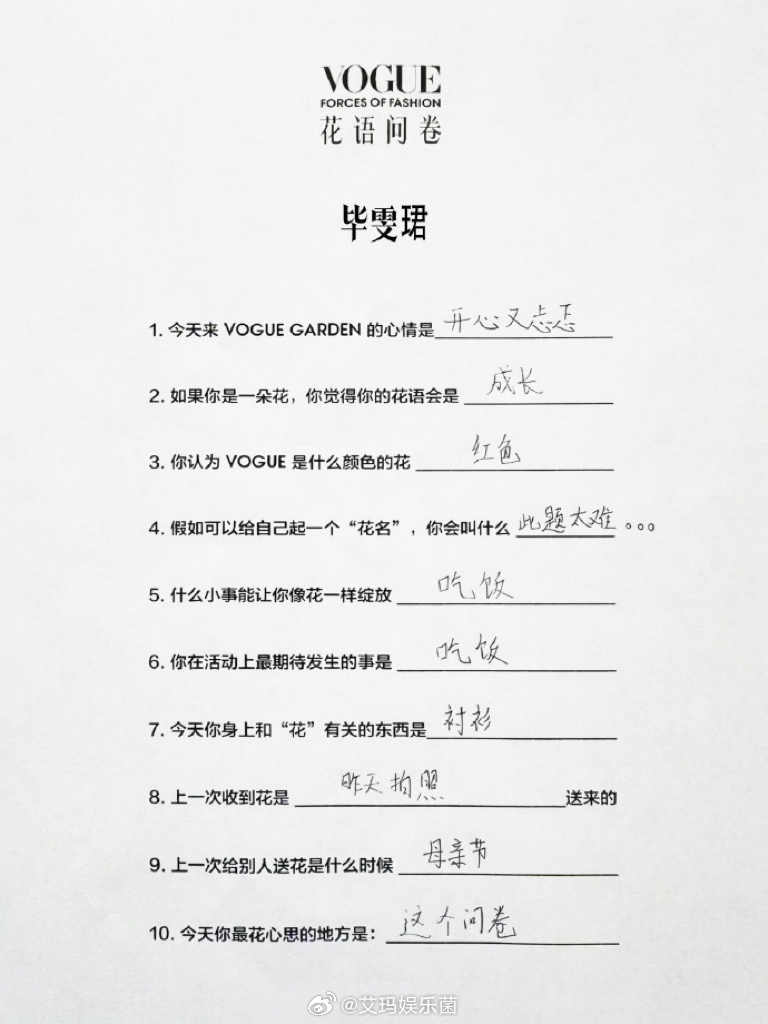 VOGUE
FORCES OF FASHION
花语问卷
毕雯珺
1. 今天来 VOGUE GARDEN 的心情是 开心又忐忑
2. 如果你是一朵花，你觉得你的花语会是 成长
3. 你认为 VOGUE 是什么颜色的花 红色
4. 假如可以给自己起一个“花名”，你会叫什么 此题太难。。。
5. 什么小事能让你像花一样绽放 吃饭
6. 你在活动上最期待发生的事是 吃饭
7. 今天你身上和“花”有关的东西是 衬衫
8. 上一次收到花是 昨天拍照 送来的
9. 上一次给别人送花是什么时候 母亲节
10. 今天你最花心思的地方是： 这个问卷
@艾玛娱乐菌